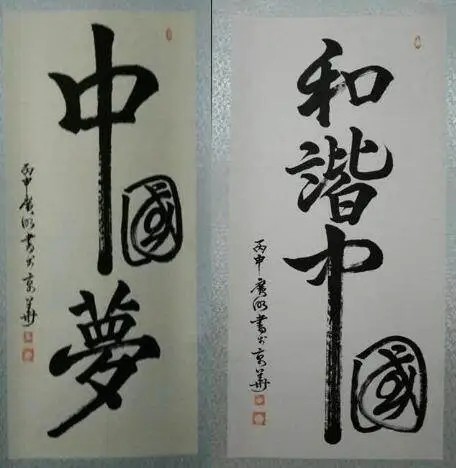 中國夢
丙申廣泓書於京華
和諧中國
丙申廣泓書於京華